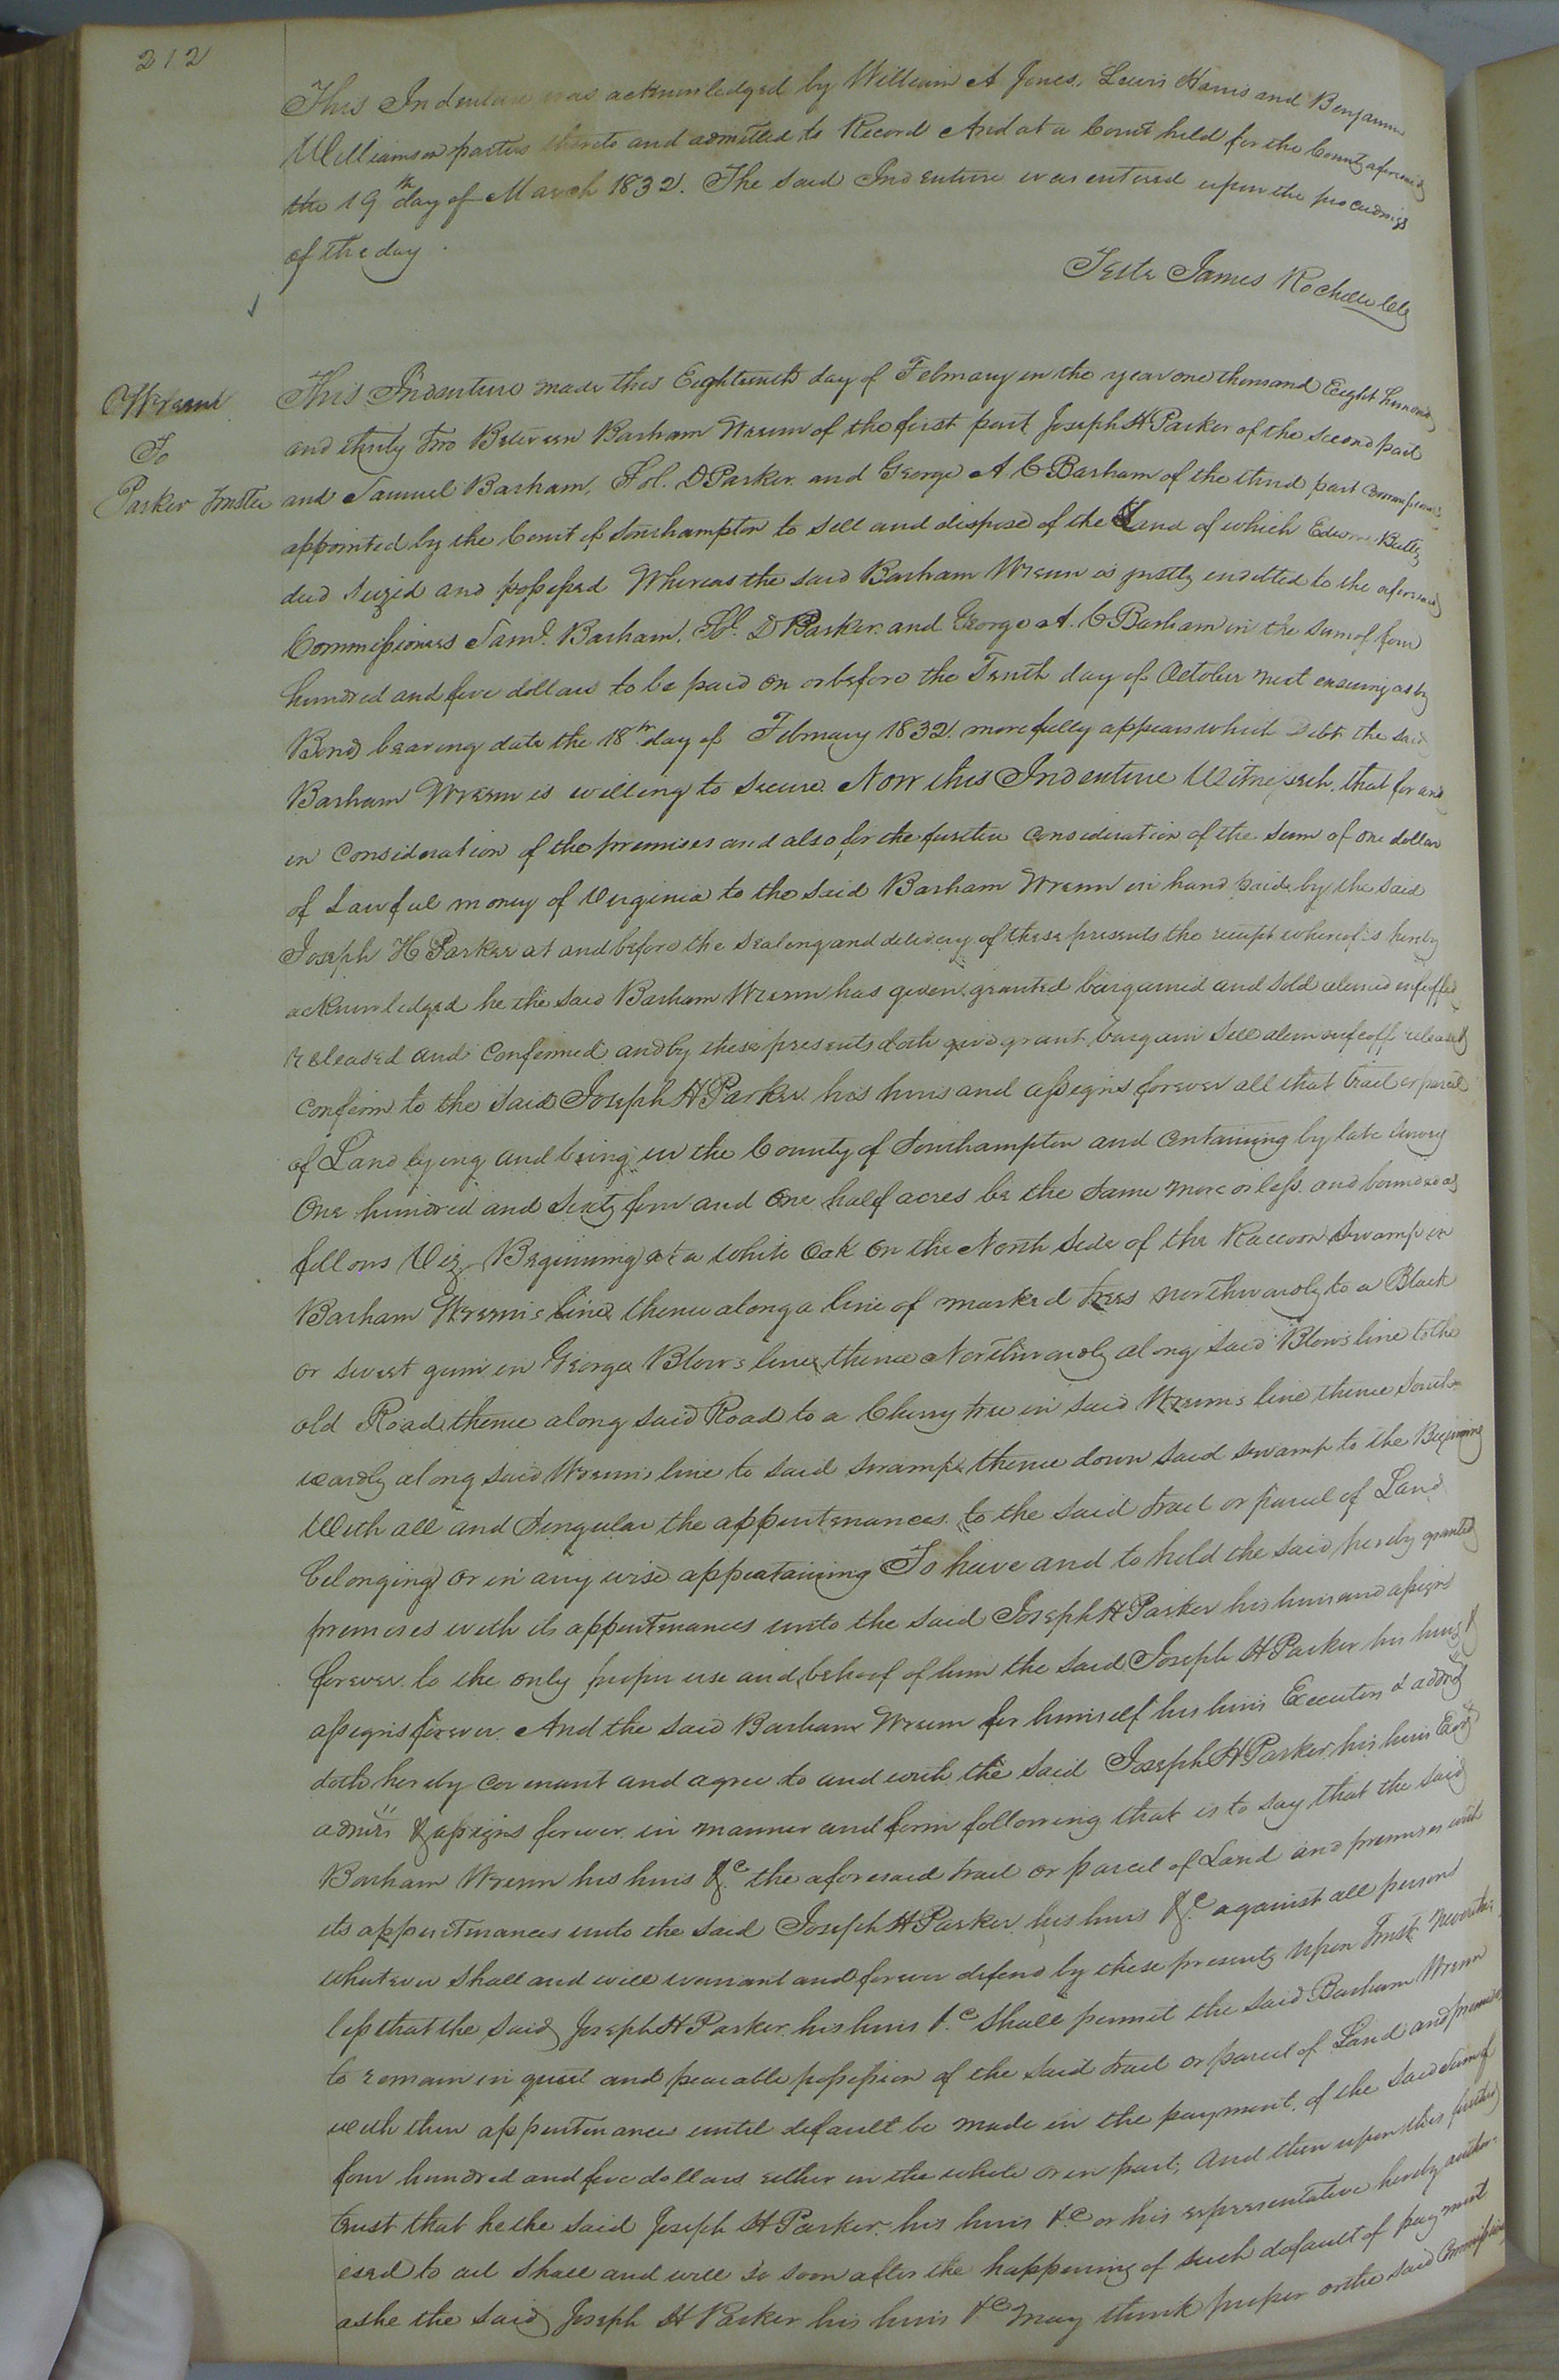 212
This Indenture was acknowledged by William A Jones, Lewis Harris and Benjamin
Williamson parties thereto and admitted to Record And at a Court held for the County aforesaid
the 19th day of March 1832. The said Indenture was entered upon the proceedings
of the day.
Teste James Rochelle Clk
Wrenn
To
Parker Trustee
This Indenture made this Eighteenth day of February in the year one thousand Eight hundred
and thirty two Between Barham Wrenn of the first part Joseph H Parker of the second part
and Samuel Barham, Sol. D Parker and George A C Barham of the third part Commissioners
appointed by the Court of Southampton to sell and dispose of the Land of which Edwin Butts
died seized and possessed Whereas the said Barham Wrenn is justly indetted to the aforesaid
Commissioners Saml. Barham, Sol. D Parker and George A. C Barham in the sum of four
hundred and five dollars to be paid on or before the Tenth day of October next ensuing as by
Bond bearing date the 18th day of February 1832 more fully appears which Debt the said
Barham Wrenn is willing to secure Now this Indenture Witnesseth, that for and
in consideration of the premises and also for the further consideration of the sum of one dollar
of Lawful money of Virginia to the said Barham Wrenn in hand paid by the said
Joseph H Parker at and before the sealing and delivery of these presents the receipt whereof is hereby
acknowledged he the said Barham Wrenn has given, granted bargained and sold aliened enfeoffed
released and confirmed and by these presents doth give grant, bargain sell alien enfeoff release &
confirm to the said Joseph H Parker his heirs and assigns forever all that tract or parcel
of Land lying and being in the County of Southampton and containing by late survey
One hundred and Sixty four and one half acres be the same more or less and bounded as
follows Viz. Beginning at a white Oak on the North side of the Raccoon Swamp in
Barham Wrenn's line, thence along a line of marked trees northwardly to a Black
or sweet gum in George Blow's line, thence Northwardly along said Blow's line to the
old Road, thence along said Road to a Cherry tree in said Wrenn's line thence South-
wardly along said Wrenn's line to said swamp, thence down said swamp to the Beginning
With all and singular the appurtenances to the said tract or parcel of Land
belonging or in any wise appertaining To have and to hold the said hereby granted
premises with its appurtenances unto the said Joseph H Parker his heirs and assigns
forever to the only proper use and behoof of him the said Joseph H Parker his heirs &
assigns forever. And the said Barham Wrenn for himself his heirs Executors & admrs
doth hereby covenant and agree to and with the said Joseph H Parker, his heirs Exors
admrs & assigns forever in manner and form following that is to say that the said
Barham Wrenn his heirs &c the aforesaid tract or parcel of Land and premises with
its appurtenances unto the said Joseph H Parker, his heirs &c against all persons
whatever shall and will warrant and forever defend by these presents Upon Trust Neverthe-
less that the said Joseph H Parker his heirs &c shall permit the said Barham Wrenn
to remain in quiet and peacable possession of the said tract or parcel of Land and premises
with their appurtenances until default be made in the payment of the said sum of
four hundred and five dollars either in the whole or in part; And then upon this further
trust that he the said Joseph H Parker, his heirs &c or his representative hereby author-
ised to act shall and will so soon after the happening of such default of payment
as he the said Joseph H Parker his heirs &c may think proper or the said Commissioners